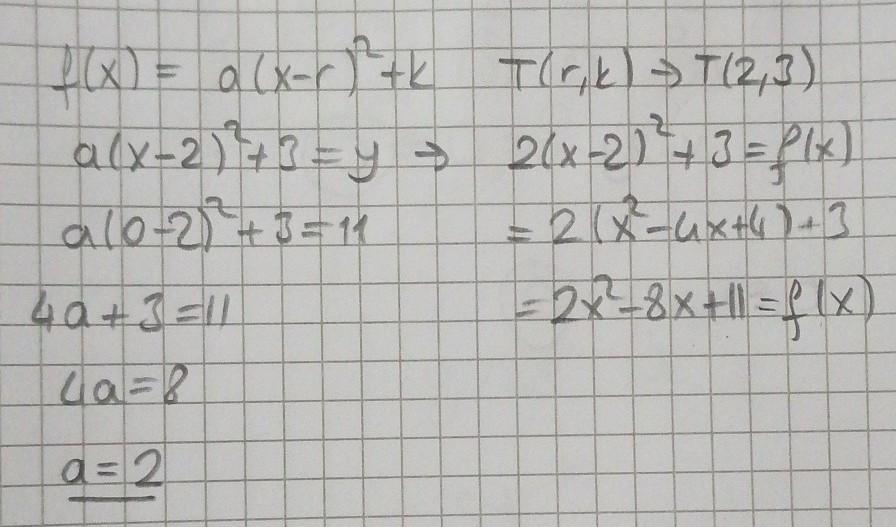 f(x) = a(x-r)²+k    T(r,k) → T(2,3)
a(x-2)²+3=y →    2(x-2)²+3=f(x)
a(0-2)²+3=11    =2(x²-4x+4)+3
4a+3=11    =2x²-8x+11=f(x)
4a=8
a=2